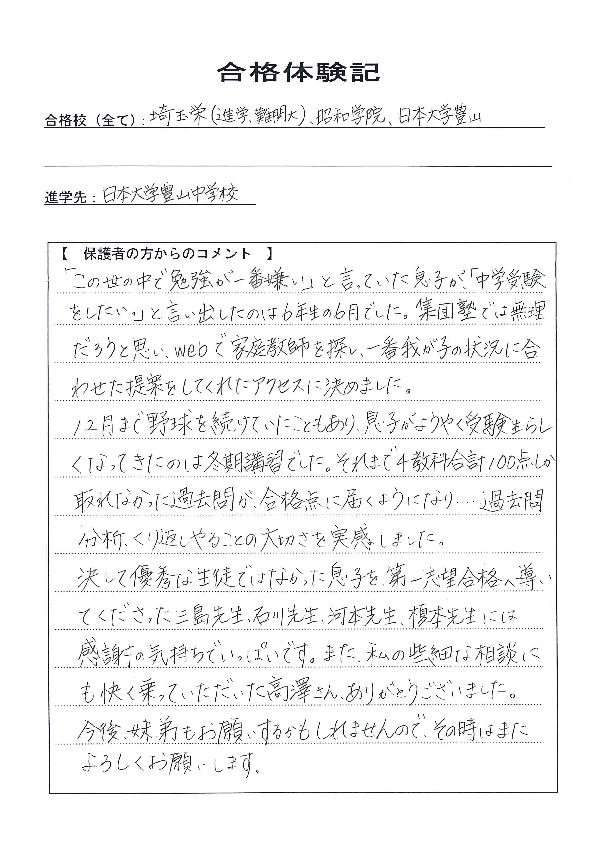 合格体験記
合格校（全て）：埼玉栄（進学、難関大）、昭和学院、日本大学豊山
進学先：日本大学豊山中学校
【 保護者の方からのコメント 】
「この世の中で勉強が一番嫌い」と言っていた息子が、「中学受験
をしたい」と言い出したのは6年生の6月でした。集団塾では無理
だろうと思い、webで家庭教師を探し、一番我が子の状況に合
わせた提案をしてくれたアクセスに決めました。
12月まで野球を続けていたこともあり、息子がようやく受験生らし
くなってきたのは冬期講習でした。それまで4教科合計100点しか
取れなかった過去問が、合格点に届くようになり…過去問
分析、くり返しやることの大切さを実感しました。
決して優秀な生徒ではなかった息子を、第一志望合格へ導い
てくださった三島先生、石川先生、河本先生、榎本先生には
感謝の気持ちでいっぱいです。また、私の些細な相談に
も快く乗っていただいた高澤さん、ありがとうございました。
今後、妹弟もお願いするかもしれませんので、その時はまた
よろしくお願いします。